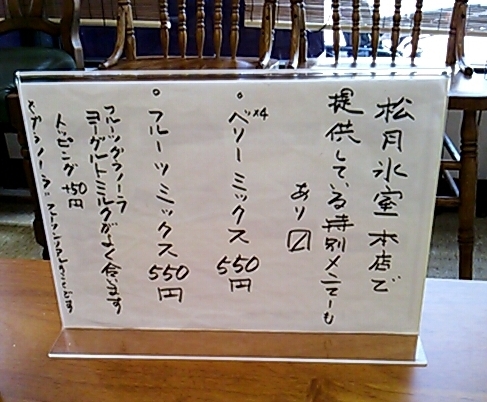 松月氷室本店で
提供している特別メニューも
あり〼
。ベリーミックス 550円
※4
。フルーツミックス 550円
フルーツグラノーラ
ヨーグルトミルクがよく合います
トッピング +50円